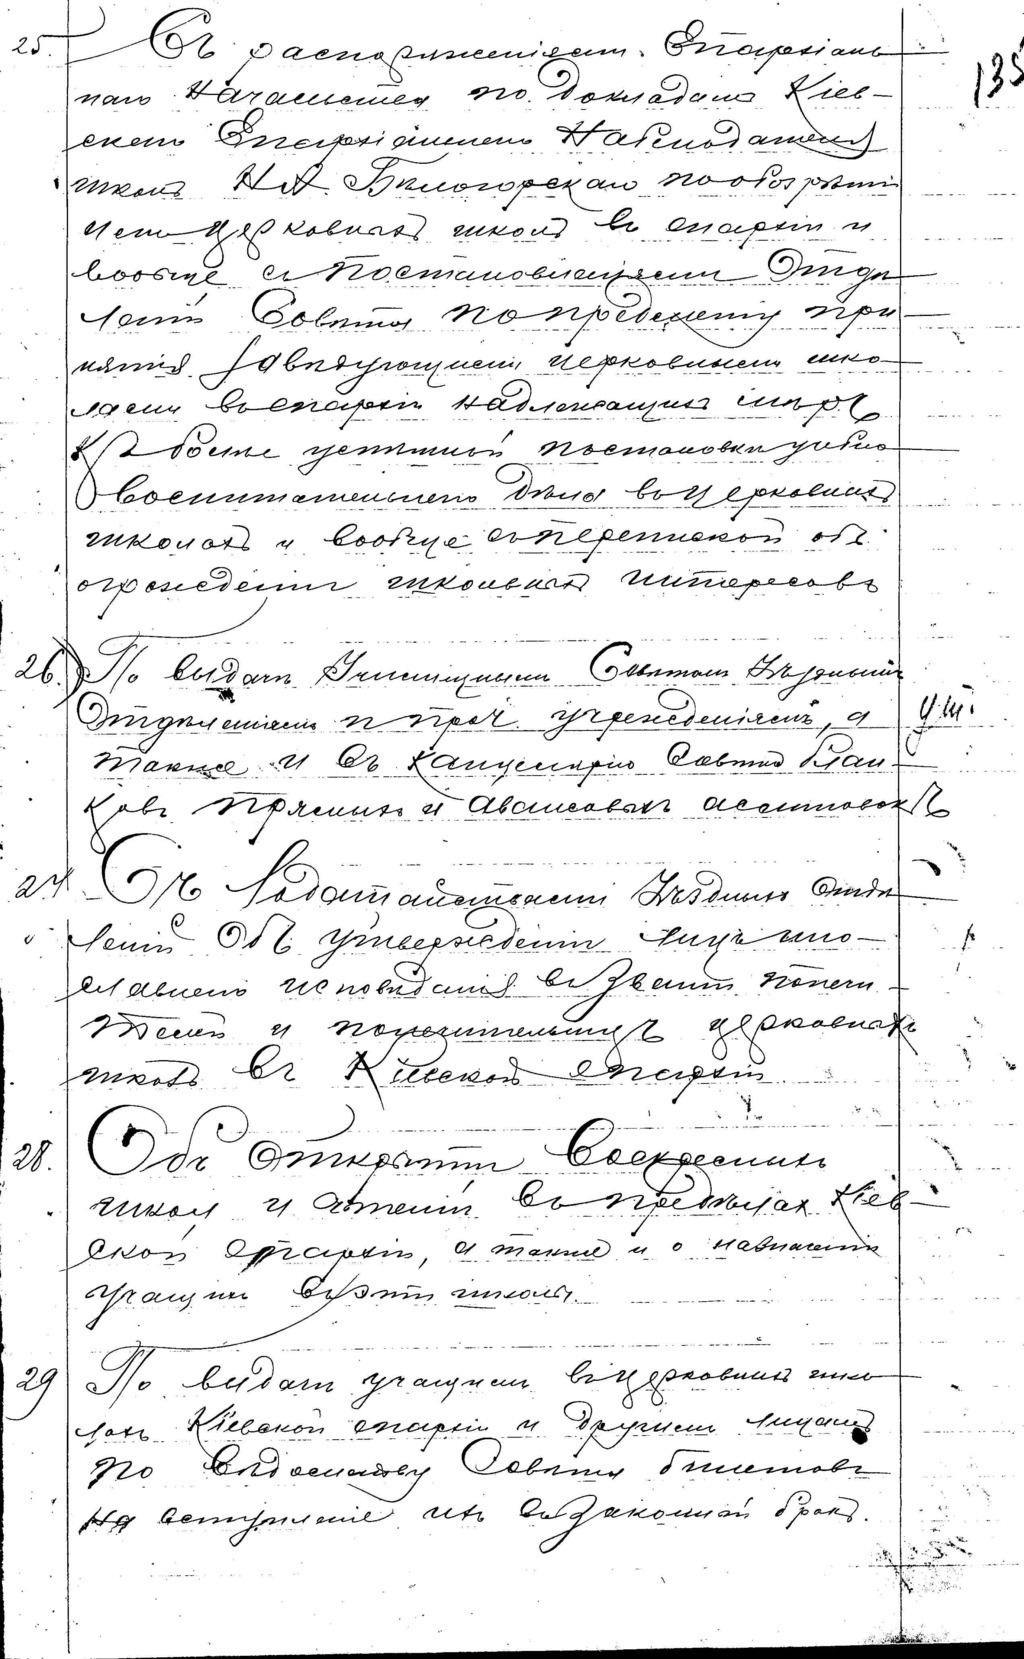 135
25. Съ распоряженіями Епархіаль
наго Начальства по докладамъ Кіев-
скаго Епархіальнаго Наблюдателя
школъ Н. А. Бѣлогорскаго по обозрѣнію
имъ церковныхъ школъ въ епархіи и
вообще съ постановленіями Отдѣ
леній Совѣта по предмету при
нятія завѣдующими церковными шко
лами въ епархіи надлежащихъ мѣръ
къ болѣе успѣшной постановкѣ учебно
воспитательнаго дѣла въ церковныхъ
школахъ и вообще съ перепиской объ
огражденіи школьныхъ интересовъ
26. По выдачѣ Училищнымъ Совѣтомъ Уѣзднымъ
Отдѣленіямъ и проч. учрежденіямъ, а
также и въ Канцелярію Совѣта блан
ковъ прямыхъ и авансовыхъ ассигновокъ
27 Съ ходатайствами Уѣздныхъ Отдѣ
леній объ утвержденіи лицъ ино-
славнаго исповѣданія въ званіи попечи
телей и попечительницъ церковныхъ
школъ въ Кіевской епархіи
28. Объ открытіи Воскресныхъ
школъ и чтеній въ предѣлахъ Кіев
ской епархіи, а также и о назначеніи
учащихъ въ эти школы.
29 По выдачѣ учащимъ въ церковныхъ шко
лахъ Кіевской епархіи и другимъ лицамъ
по вѣдомству Совѣта билетовъ
на вступленіе ихъ въ законный бракъ.